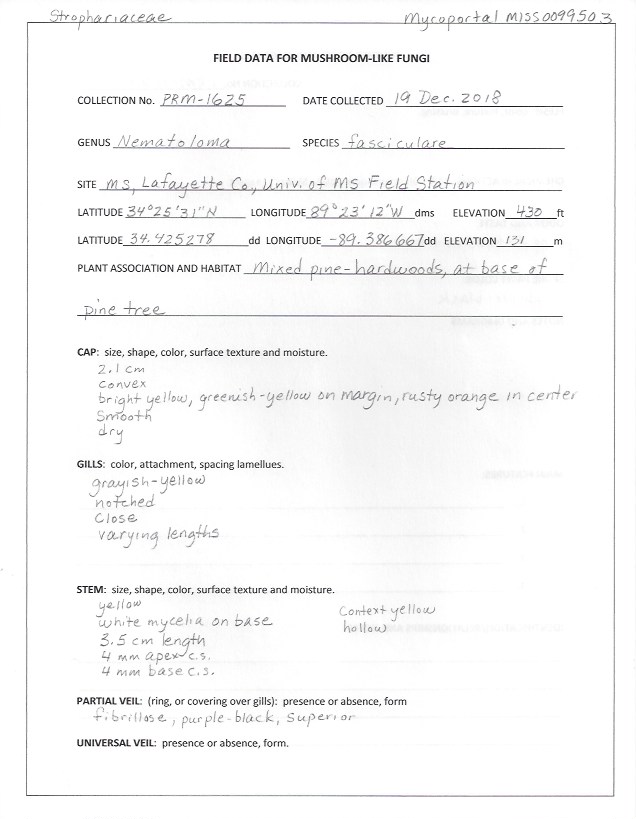 Strophariaceae Mycoportal MISS0099503
FIELD DATA FOR MUSHROOM-LIKE FUNGI
COLLECTION No. PRM-1625 DATE COLLECTED 19 Dec. 2018
GENUS Nematoloma SPECIES fasciculare
SITE MS, Lafayette Co., Univ. of MS Field Station
LATITUDE 34°25'31"N LONGITUDE 89°23'12"W dms ELEVATION 430 ft
LATITUDE 34.425278 dd LONGITUDE -89.386667 dd ELEVATION 131 m
PLANT ASSOCIATION AND HABITAT Mixed pine-hardwoods, at base of
pine tree
CAP: size, shape, color, surface texture and moisture.
2.1 cm
convex
bright yellow, greenish-yellow on margin, rusty orange in center
Smooth
dry
GILLS: color, attachment, spacing lamellues.
grayish-yellow
notched
Close
varying lengths
STEM: size, shape, color, surface texture and moisture.
yellow
white mycelia on base
3.5 cm length
4 mm apex c.s.
4 mm base c.s.
Context yellow
hollow
PARTIAL VEIL: (ring, or covering over gills): presence or absence, form
fibrillose, purple-black, Superior
UNIVERSAL VEIL: presence or absence, form.